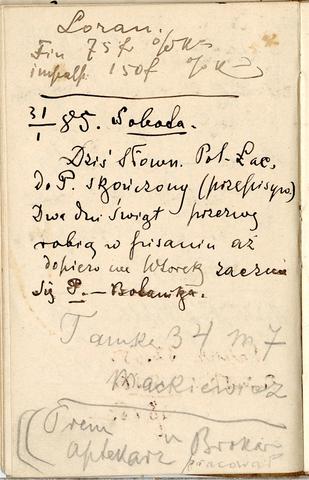 Loran.
Fin 75f
150f
31/1 85. Soboda.
Dziś Słown. Pol-Łac,
do P. skończony (przepisyw.)
Dwa dni świąt przerwę
robią w pisaniu aż
dopiero we Wtorek zacznie
się P. – Botanika.
Tamka 34 m 7
Mackiewicz
Prem
aptekarz Brokar
pracował